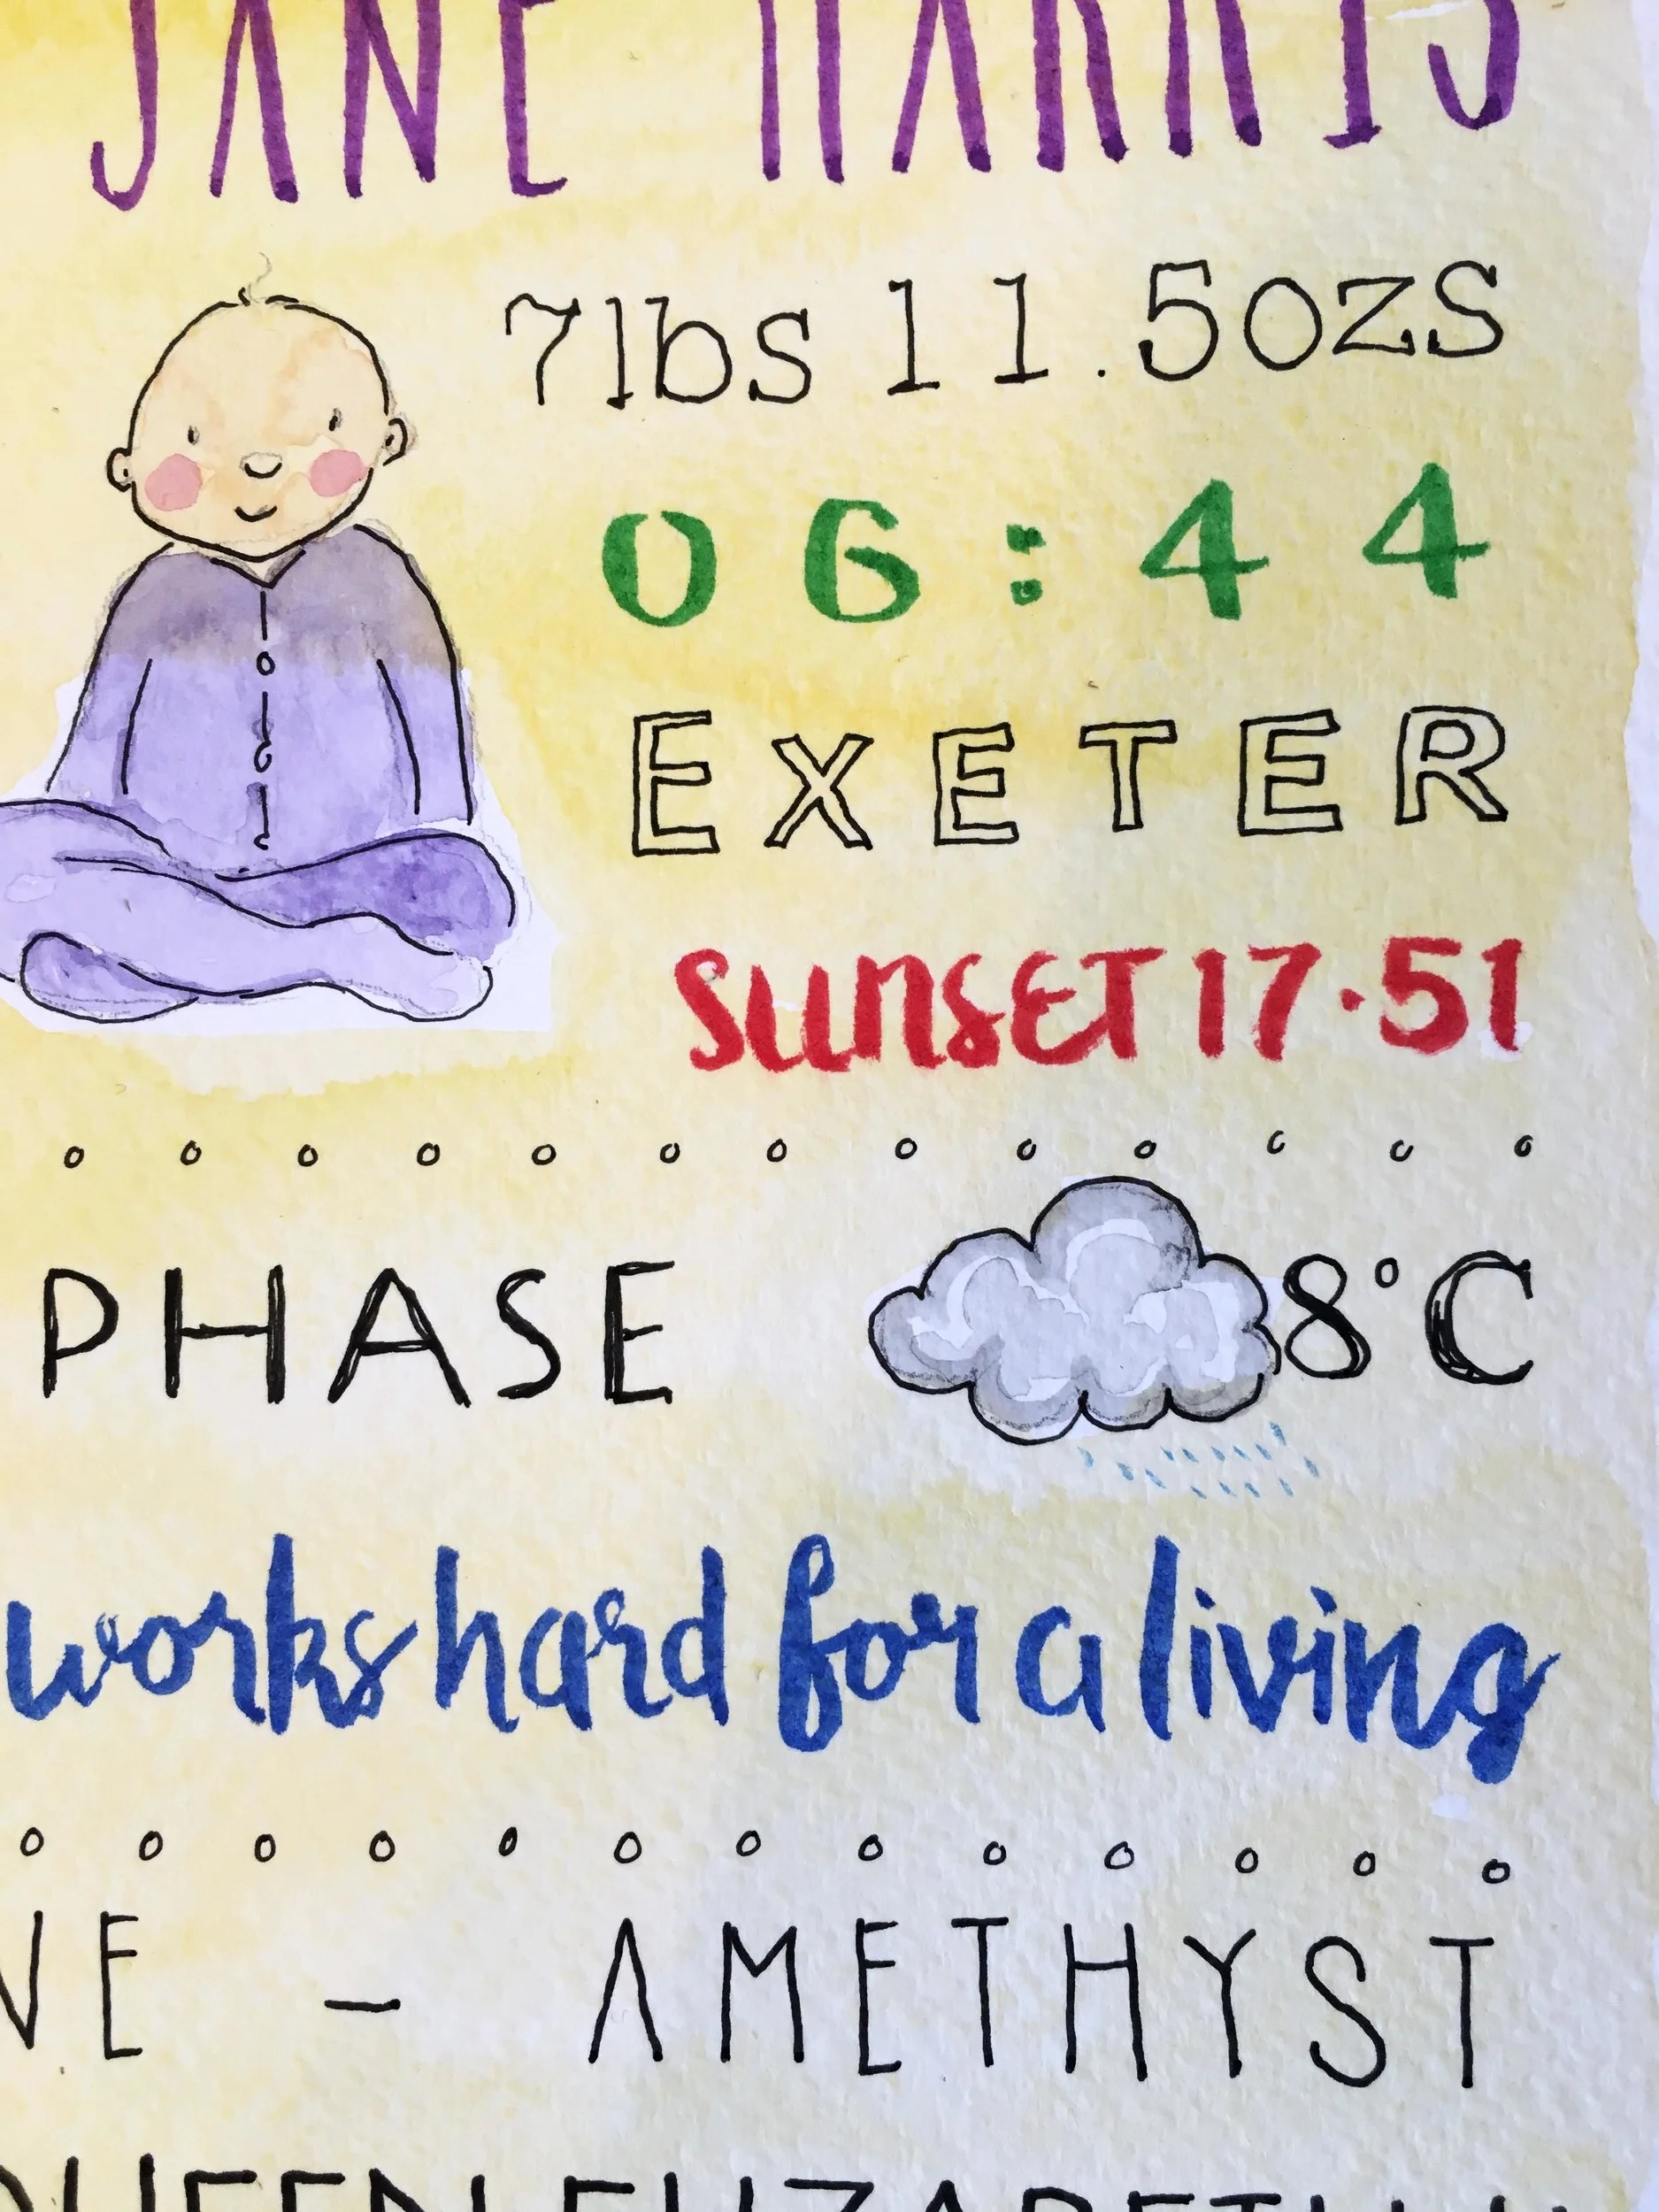 JANE HARRIS
7lbs 11.5ozs
06:44
EXETER
SUNSET 17.51
PHASE 8°C
works hard for a living
NE - AMETHYST
QUEEN ELIZABETH